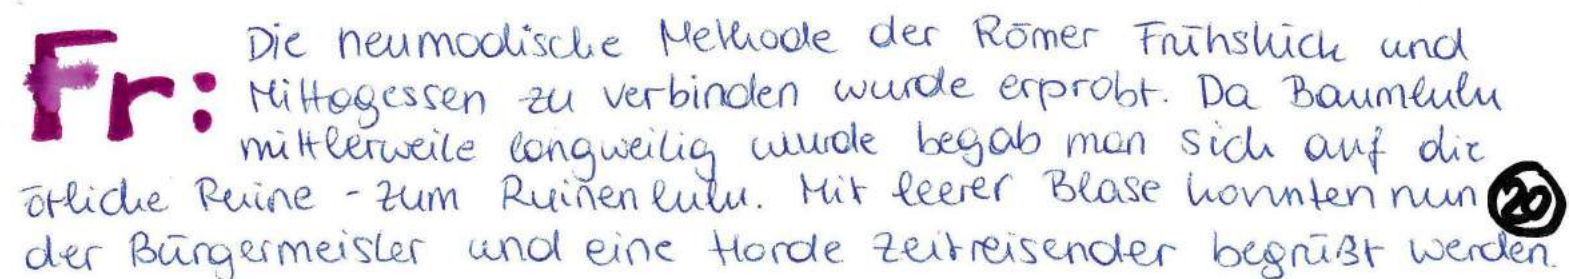 Fr: Die neumodische Methode der Römer Frühstück und
Mittagessen zu verbinden wurde erprobt. Da Baumlulu
mittlerweile langweilig wurde begab man sich auf die
örtliche Ruine - zum Ruinenlulu. Mit leerer Blase konnten nun
20
der Bürgermeister und eine Horde Zeitreisender begrüßt werden.